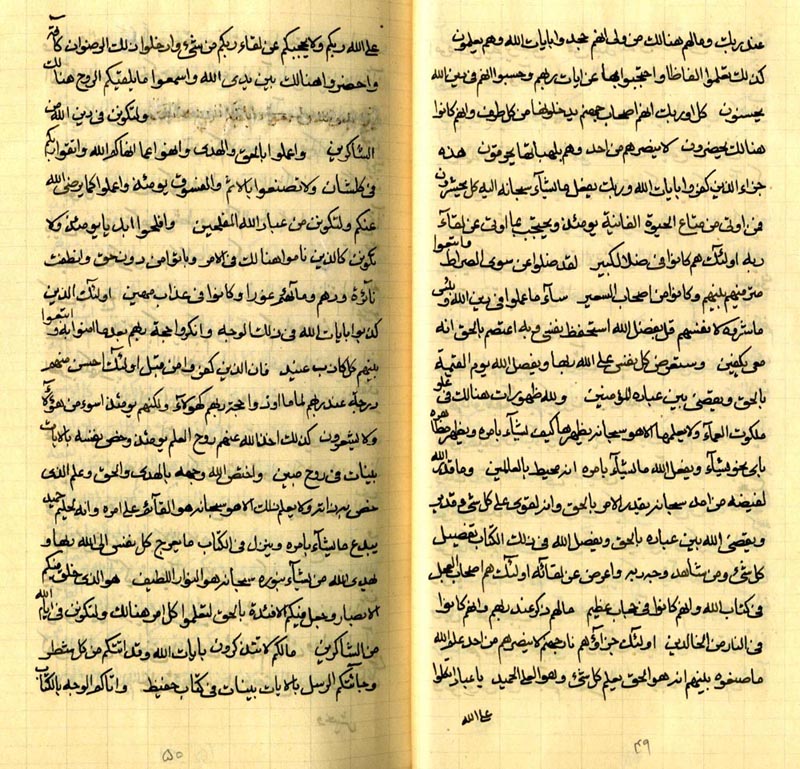 عند ربك ومالهم هنالك من ولى انهم بمجد وا بايات الله وهم يعلمون
كذلك تعلموا الفاظا واحتجبوا بها عن ايات ربهم وحسبوا انهم فى دين الله
يحسنون كلا وربك انهم اصحاب جهنم يدخلونها من كل طرف وانهم كانوا
هنالك يحضرون لا ينصرهم من احد وهم بلهباتها يحرقون هذه
جزاء الذين كفروا بايات الله وربك يفعل ما يشآء سبحانه اليه كل يحشرون
فمن اوتى من متاع الحيوة الفانية يومئذ ويحتجب بما اوتى عن لقآء
ربه اولئك هم كانوا فى ضلال كبير لقد ضلوا عن سوى الصراط واتبعوا
مترفيهم بينهم وكانوا من اصحاب السعير سآء ما عملوا فى دين الله وبئس
ما شروه لانفسهم قل بفضل الله استحفظ نفسى وبه اعتصم بالحق انه
معى يكفين وستعرض كل نفس على الله ربها ويفصل الله يوم القيمة
بالحق ويقضى بين عباده للمؤمنين ولله ظهورات هنالك فى علو
ملكوت العمآء ولا يعلمها الا هو سبحانه يظهرها كيف يشآء بامره ويظهر مظاهره
باى نحو يشآء ويفعل الله ما يشآء بامره انه محيط بالعالمين وما قدر الله
لفيضه من امد سبحانه يقدر الامر بالحق وانه لقوى على كل شىء قدير
ويقضى الله بين عباده بالحق ويفصل الله فى ذلك الكتاب تفصيل
كل شىء ومن شاهد وجه ربه واعرض عن لقآئه اولئك هم اصحاب العجل
فى كتاب الله وانهم كانوا فى حجاب عظيم مالهم ذكر عند ربهم وانهم كانوا
فى النار من الخالدين اولئك جزآؤهم نار جهنم لا ينصرهم من احد علم الله
ما صنعوه بينهم انه هو الحق يعلم كل شىء وهو العلى الحميد يا عباد اتكلوا
على الله
۴۹
على الله ربكم ولا يحجبكم عن لقاء ربكم من شىء وادخلوا ذلك الرضوان كآفة
واحضروا هنالك بين يدى الله واسمعوا ما يلقيكم الروح هنالك
ولتكونن فى دين الله من
الشاكرين واعملوا بالحق والهدى وانهوا عما انهاكم الله واتقوا ربكم
فى كلشان ولا تصنعوا بالاثم والفسوق يومئذ واعملوا كما يرضى الله
عنكم ولتكونن من عباد الله المفلحين وافلحوا ابدا يا يومئذ ولا
تكونن كالذين ناموا هنالك فى الامر وباتوا من دون حق وانطفت
نآئرة ودهم ومآئهم غورا وكانوا فى عذاب مهين اولئك الذين
كذبوا بايات الله فى ذلك الوجه وانكروا حجة ربهم بعد ما امنوا به واتبعوا
بينهم كل كاذب عنيد فان الذين كفروا من قبل اولئك احسن منهم
درجة عند ربهم لما ما اوذوا حجة ربهم كهؤلآء ولكنهم يومئذ اسوء من هؤلآء
ولا يشعرون كذلك اخذ الله عنهم روح العلم يومئذ وخص نفسه بالايات
بينات فى روح مبين واختص الله وجهه بالهدى والحق وعلم الذى
خص به ذاته ولا يعلم ذلك الا هو سبحانه هو القآئم على امره وانه لحليم حميد
يبدع ما يشآء بامره وينزل فى الكتاب ما يعرج كل نفس الى الله ربها و
يهدى الله من يشآء بنوره سبحانه هو النوار اللطيف هو الذى خلق منكم
الابصار وجعل فيكم الافئدة بالحق لتعلموا كل امر هنالك ولتكونن فى ايام الله
من الشاكرين مالكم لا تتذكرون بايات الله وقد اتتكم من كل شطر
وجآئتكم الرسل بالايات بينات فى كتاب حفيظ واتاكم الوجه بالكتاب
۵۰